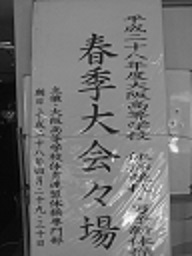 平成二十八年度大阪高等学校
春季大会々場
主催・大阪高等学校体育連盟体操専門部
期日・平成二十八年四月二十九・三十日